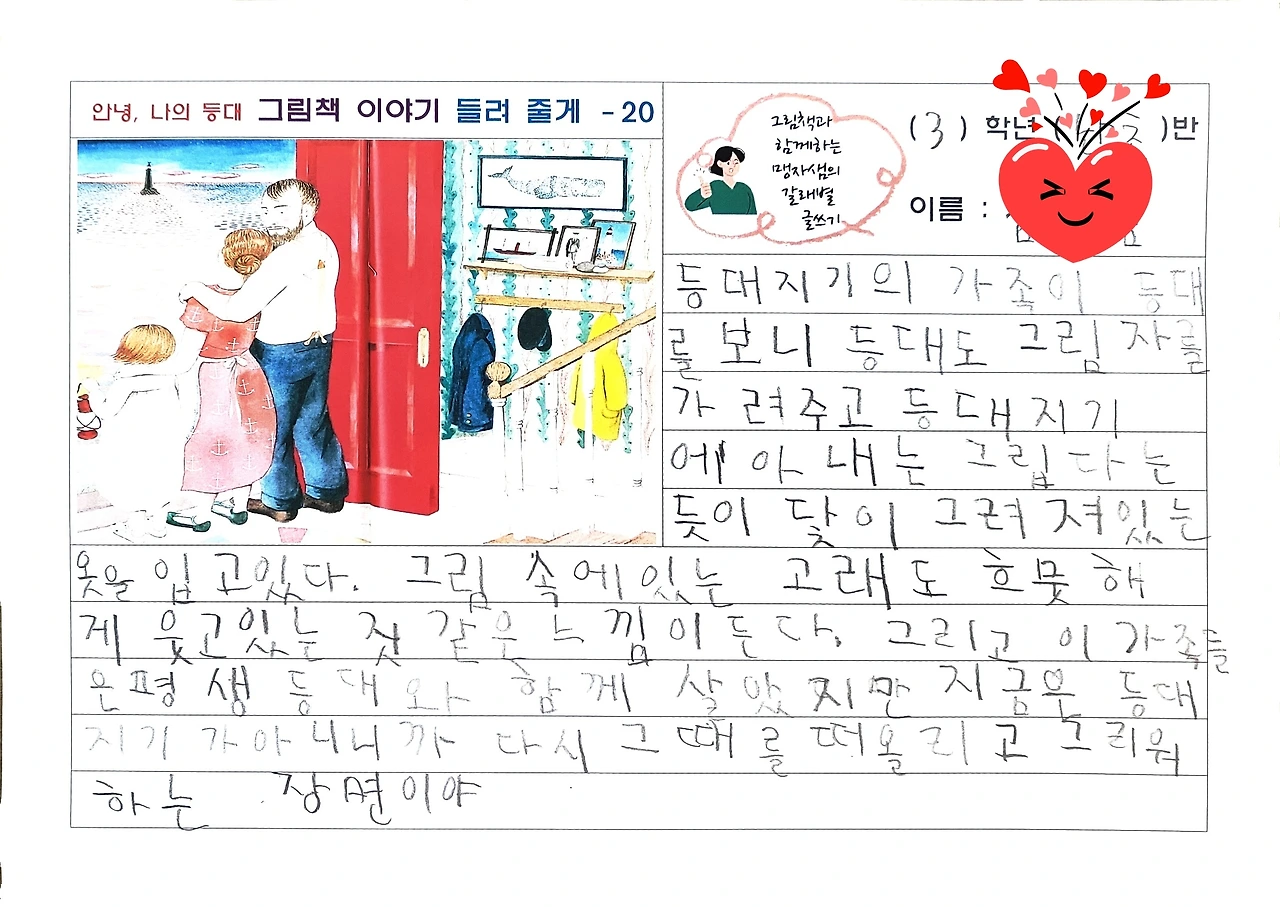 안녕, 나의 등대 그림책 이야기 들려 줄게 - 20
그림책과
함께하는
맹자샘의
갈래별
글쓰기
( 3 ) 학년 ( )반
이름 :
등대지기의 가족이 등대
를 보니 등대도 그림자를
가려주고 등대지기
에 아내는 그립다는
듯이 닻이 그려져있는
옷을 입고있다. 그림 속에있는 고래도 흐뭇해
게 웃고있는 것 같은 느낌이 든다. 그리고 이 가족들
은 평생 등대와 함께 살았지만 지금은 등대
지기가 아니니까 다시 그 때를 떠올리고 그리워
하는 장면이야